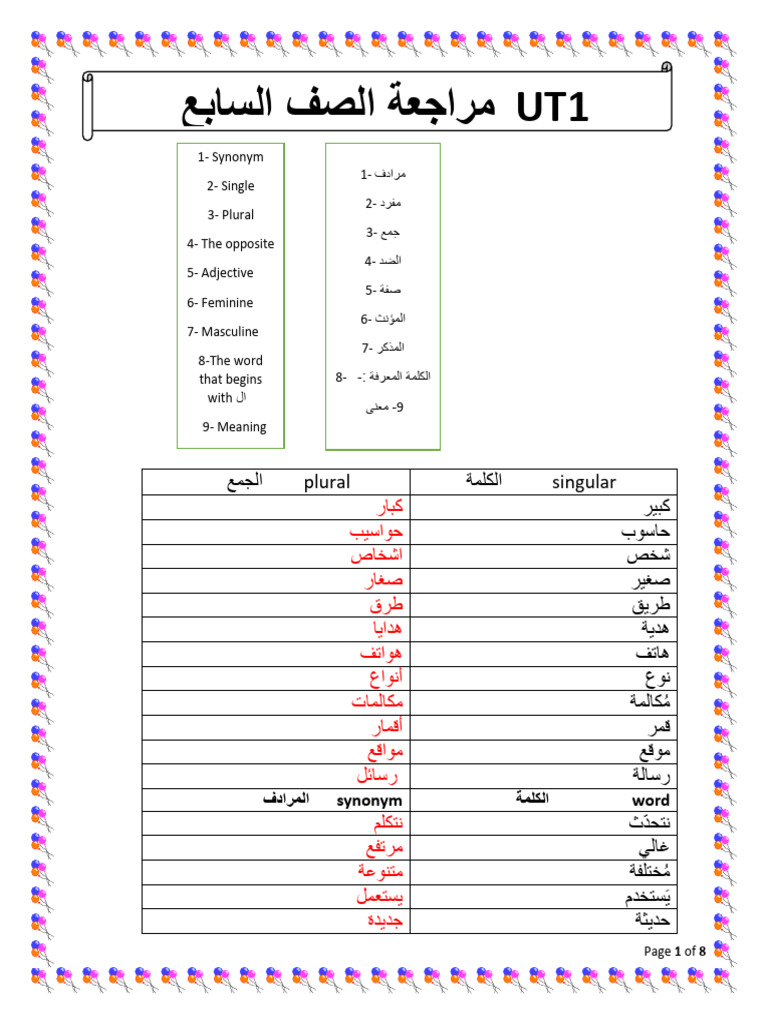 مراجعة الصف السابع UT1
1- Synonym
2- Single
3- Plural
4- The opposite
5- Adjective
6- Feminine
7- Masculine
8-The word
that begins
with ال
9- Meaning
1- مرادف
2- مفرد
3- جمع
4- الضد
5- صفة
6- المؤنث
7- المذكر
8- الكلمة المعرفة :-
9- معنى
الكلمة singular الجمع plural
كبير كبار
حاسوب حواسيب
شخص اشخاص
صغير صغار
طريق طرق
هدية هدايا
هاتف هواتف
نوع أنواع
مُكالمة مكالمات
قمر أقمار
موقع مواقع
رسالة رسائل
الكلمة word المرادف synonym
نتحدّث نتكلم
غالي مرتفع
مُختلفة متنوعة
يَستخدم يستعمل
حديثة جديدة
Page 1 of 8